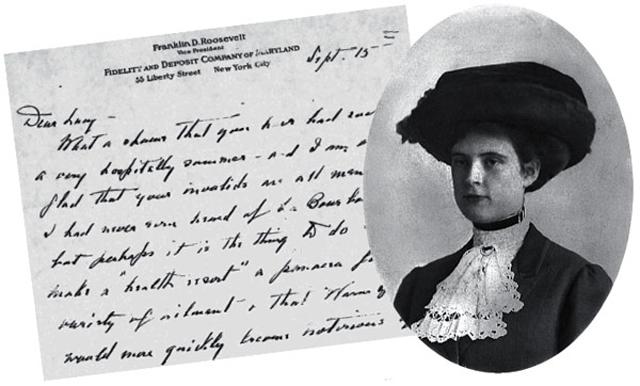 Franklin D. Roosevelt
Vice President
FIDELITY AND DEPOSIT COMPANY OF MARYLAND
55 Liberty Street New York City
Sept. 15
Dear Lucy -
What a shame that your had
a very hospitally summer - and I am
glad that your invalids are all
I had never even heard of
but perhaps it is the thing to do
make a "health resort" a panacea
variety of ailment & that Warm
would more quickly become notorious